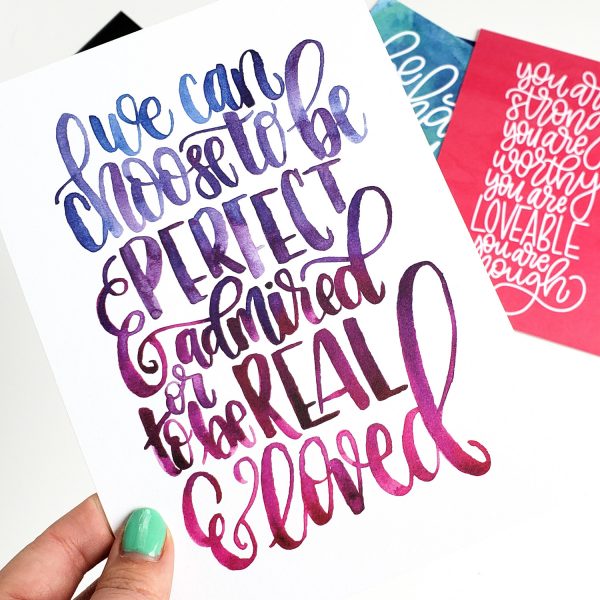 we can
choose to be
PERFECT
& admired
or
to be REAL
& loved
you are
strong
you are
worthy
you are
LOVEABLE
you are
enough